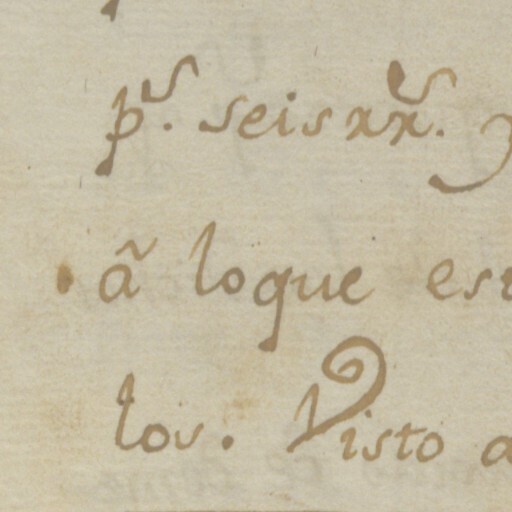 p.s seis xx.s y
ã loque es
los. Visto a